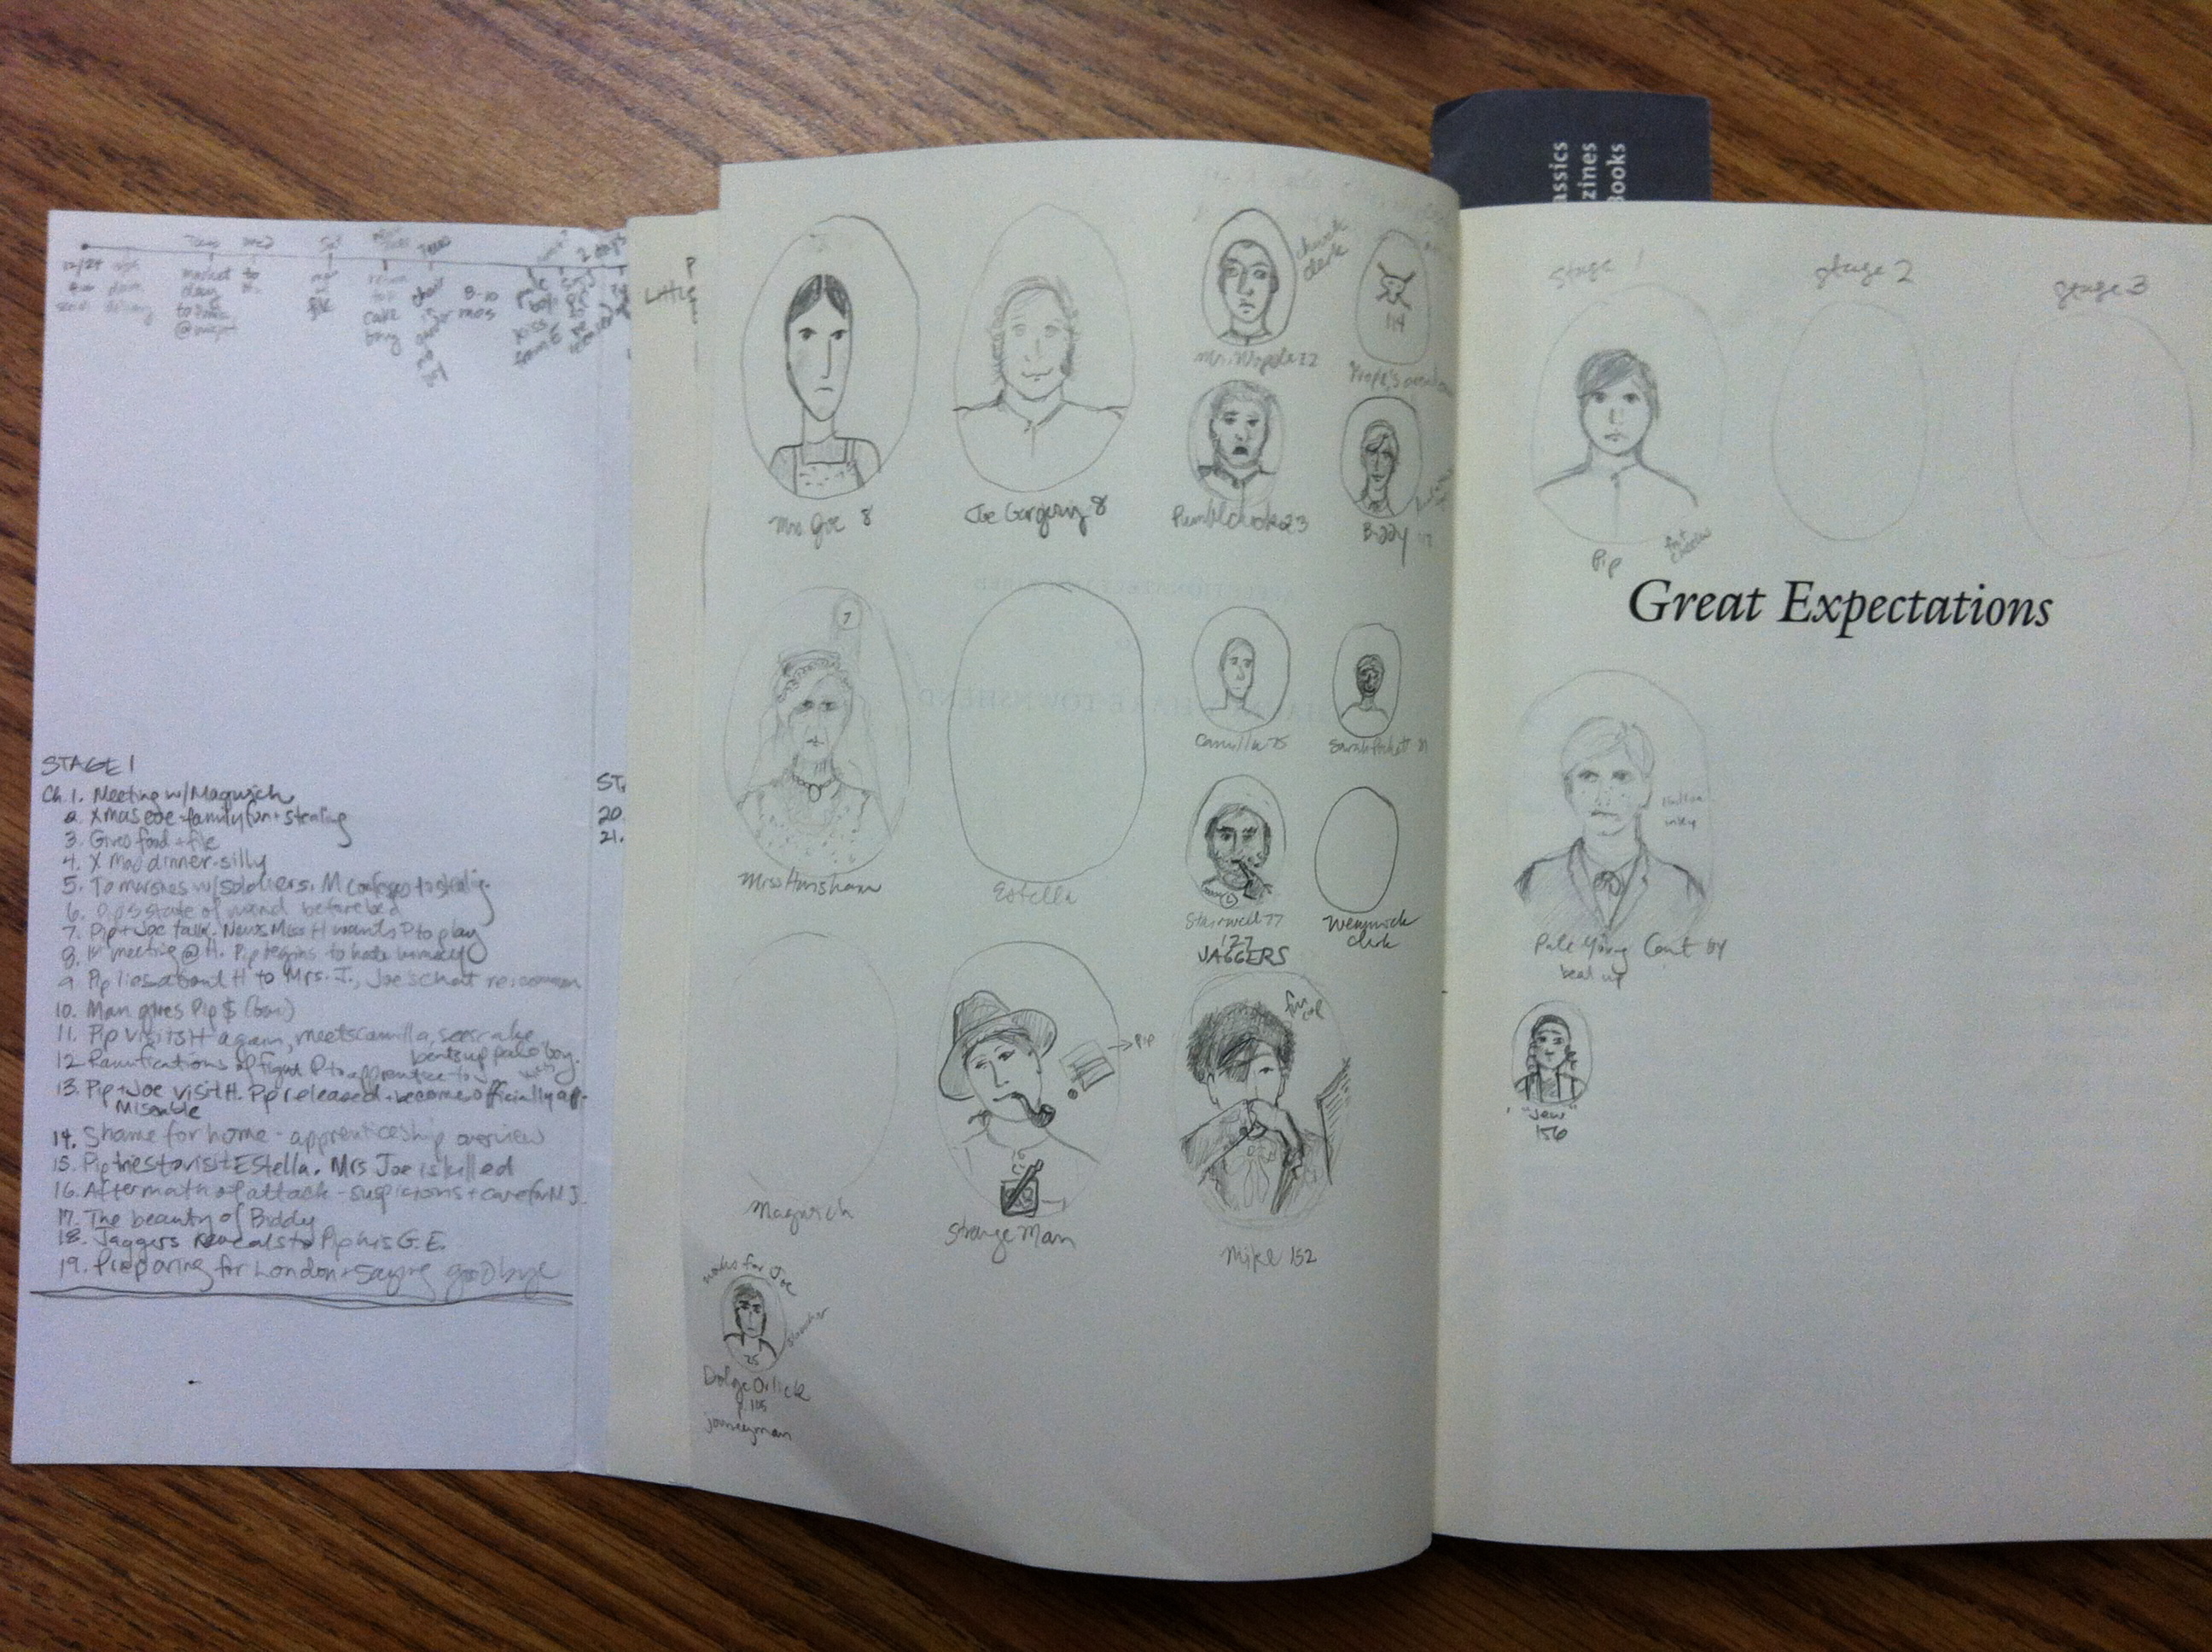 12/24
market
day
to
8-10
mos
cake
kiss
2 days
STAGE 1
Ch 1. Meeting w/Magwich
2. Xmas eve - family fun + stealing
3. Gives food + file
4. Xmas dinner - silly
5. To marshes w/soldiers. M confesses to stealing
6. Pip's state of mind before bed
7. Pip + Joe talk. News Miss H wants P to play
8. 1st meeting @ H. Pip begins to hate himself
9. Pip lies about H to Mrs. J., Joe's chat re: common
10. Man gives Pip $ (bar)
11. Pip visits H again, meets Camilla, sees cake
beats up pale boy.
12. Ramifications of fight P to apprentice to J
13. Pip + Joe visit H. Pip released + become officially app.
Miserable
14. Shame for home - apprenticeship overview
15. Pip tries to visit Estella. Mrs Joe is killed
16. Aftermath of attack - suspicions + care for M J.
17. The beauty of Biddy
18. Jaggers reveals to Pip his G.E.
19. Preparing for London + saying goodbye
ST.
20.
21.
P
Little
Mrs. Joe 8
Joe Gargery 8
church
clerk
Mr. Wopsle 22
114
Pumblchook 23
Biddy
7
Miss Havisham
Estella
Camilla 75
Sarah Pocket
Stairwell 77
127
JAGGERS
Wemmick
clerk
Magwich
→ Pip
Strange Man
fur cap
Mike 152
works for Joe
sloucher
25
Dolge Orlick
p. 105
journeyman
assics
zines
Books
Stage 1
Stage 2
Stage 3
Pip
Great Expectations
inky
Pale Young Gent
beat up
"Jew"
156